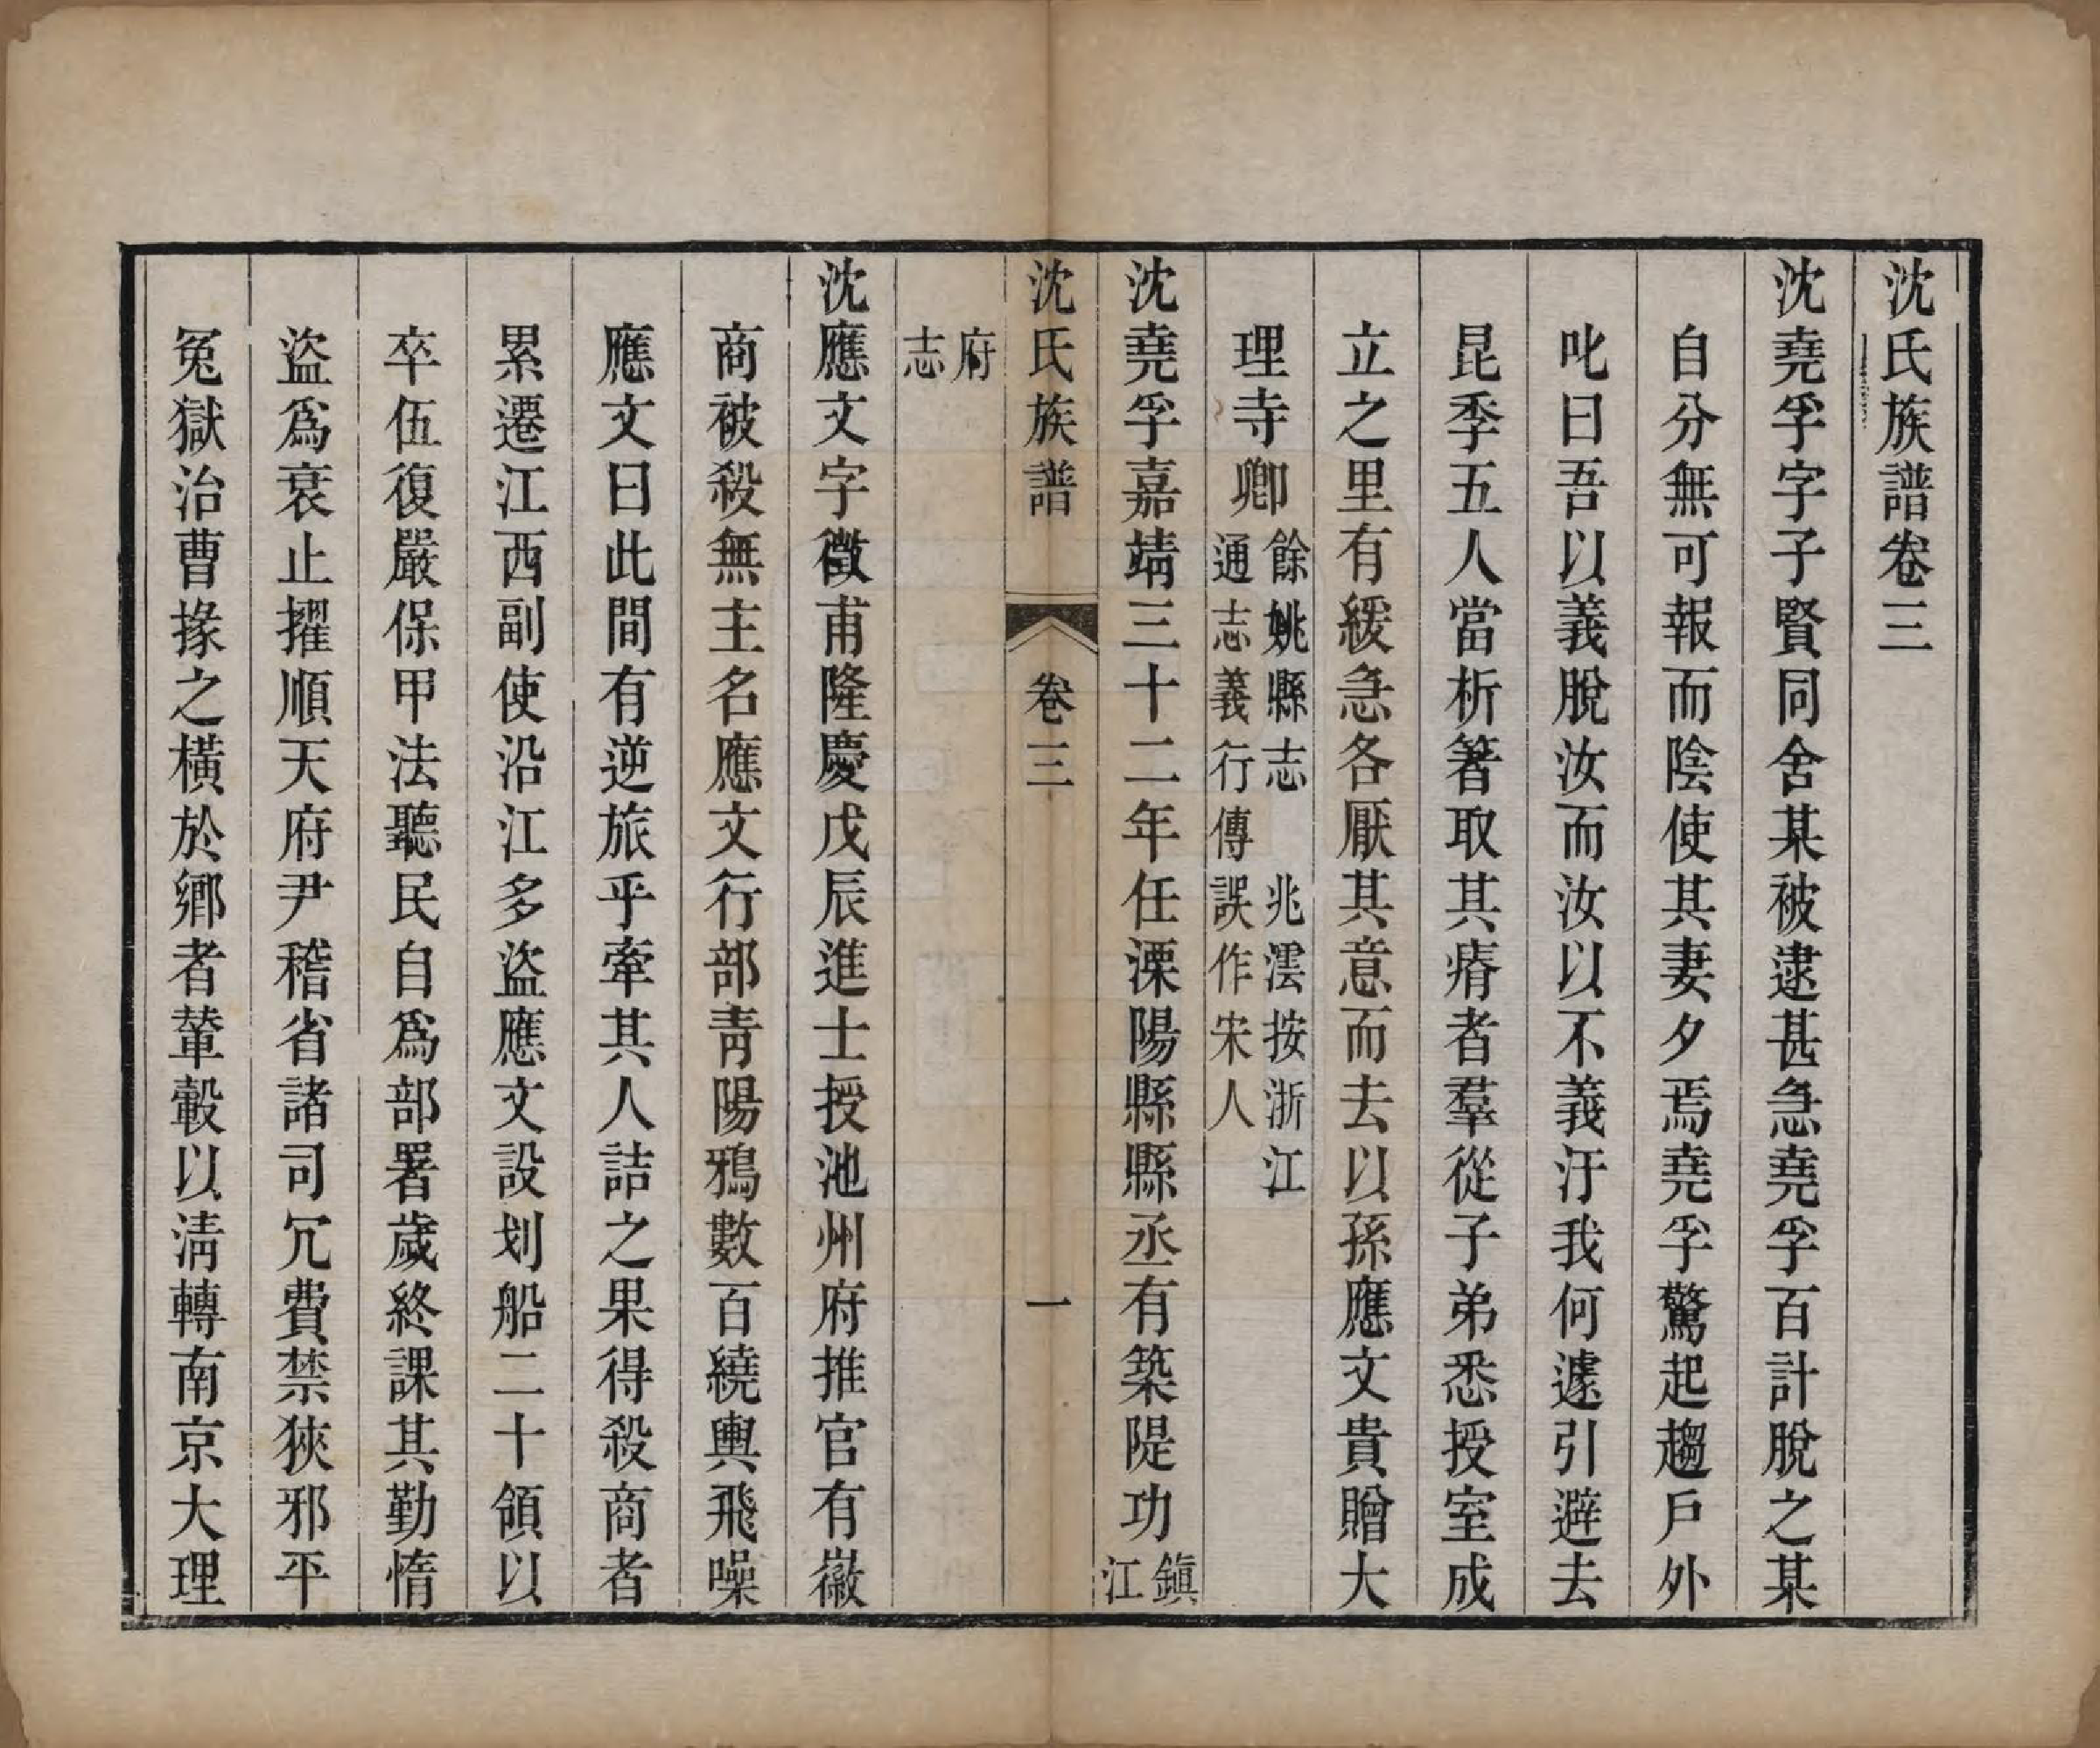 沈氏族譜卷三
沈堯孚字子賢同舍某被逮甚急堯孚百計脫之某
自分無可報而陰使其妻夕焉堯孚驚起趨戶外
叱曰吾以義脫汝而汝以不義汙我何遽引避去
昆季五人當析箸取其瘠者羣從子弟悉授室成
立之里有緩急各厭其意而去以孫應文貴贈大
理寺卿餘姚縣志 兆澐按浙江
通志義行傳誤作宋人
沈堯孚嘉靖三十二年任溧陽縣縣丞有築隄功鎮
江
沈氏族譜 卷三 一
府
志
沈應文字徵甫隆慶戊辰進士授池州府推官有徽
商被殺無主名應文行部青陽鴉數百繞輿飛噪
應文曰此間有逆旅乎牽其人詰之果得殺商者
累遷江西副使沿江多盜應文設划船二十領以
卒伍復嚴保甲法聽民自為部署歲終課其勤惰
盜為衰止擢順天府尹稽省諸司冗費禁狹邪平
冤獄治曹掾之橫於鄉者輦轂以清轉南京大理